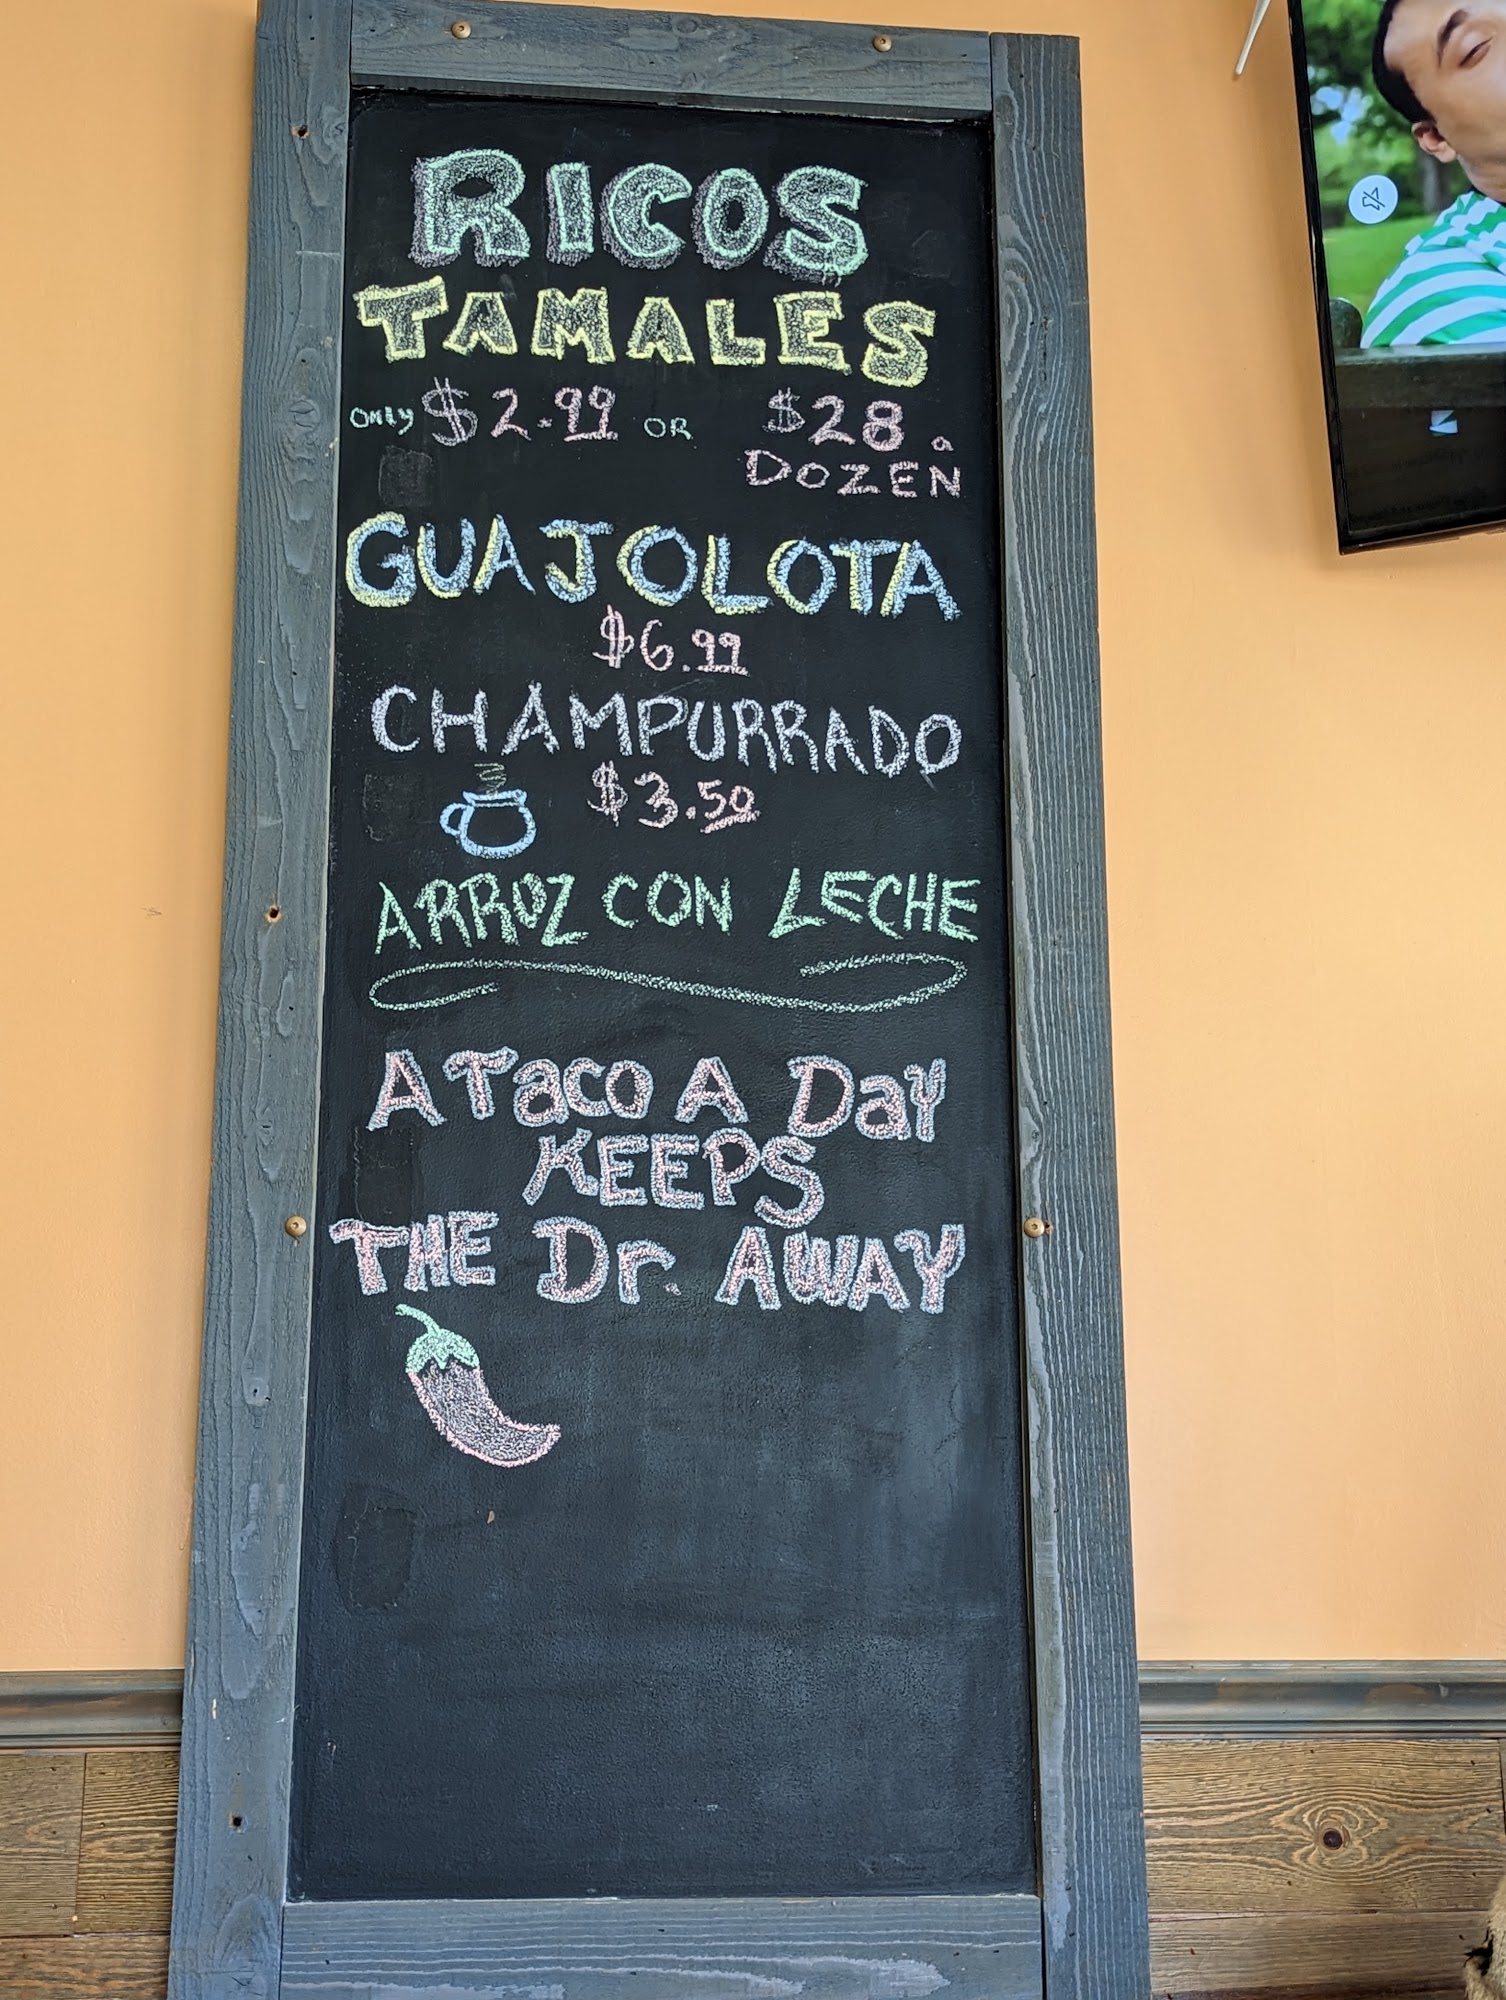 RICOS
TAMALES
ONLY $2.99 OR $28 a
DOZEN
GUAJOLOTA
$6.99
CHAMPURRADO
$3.50
ARROZ CON LECHE
A Taco A Day
KEEPS
THE Dr. AWAY